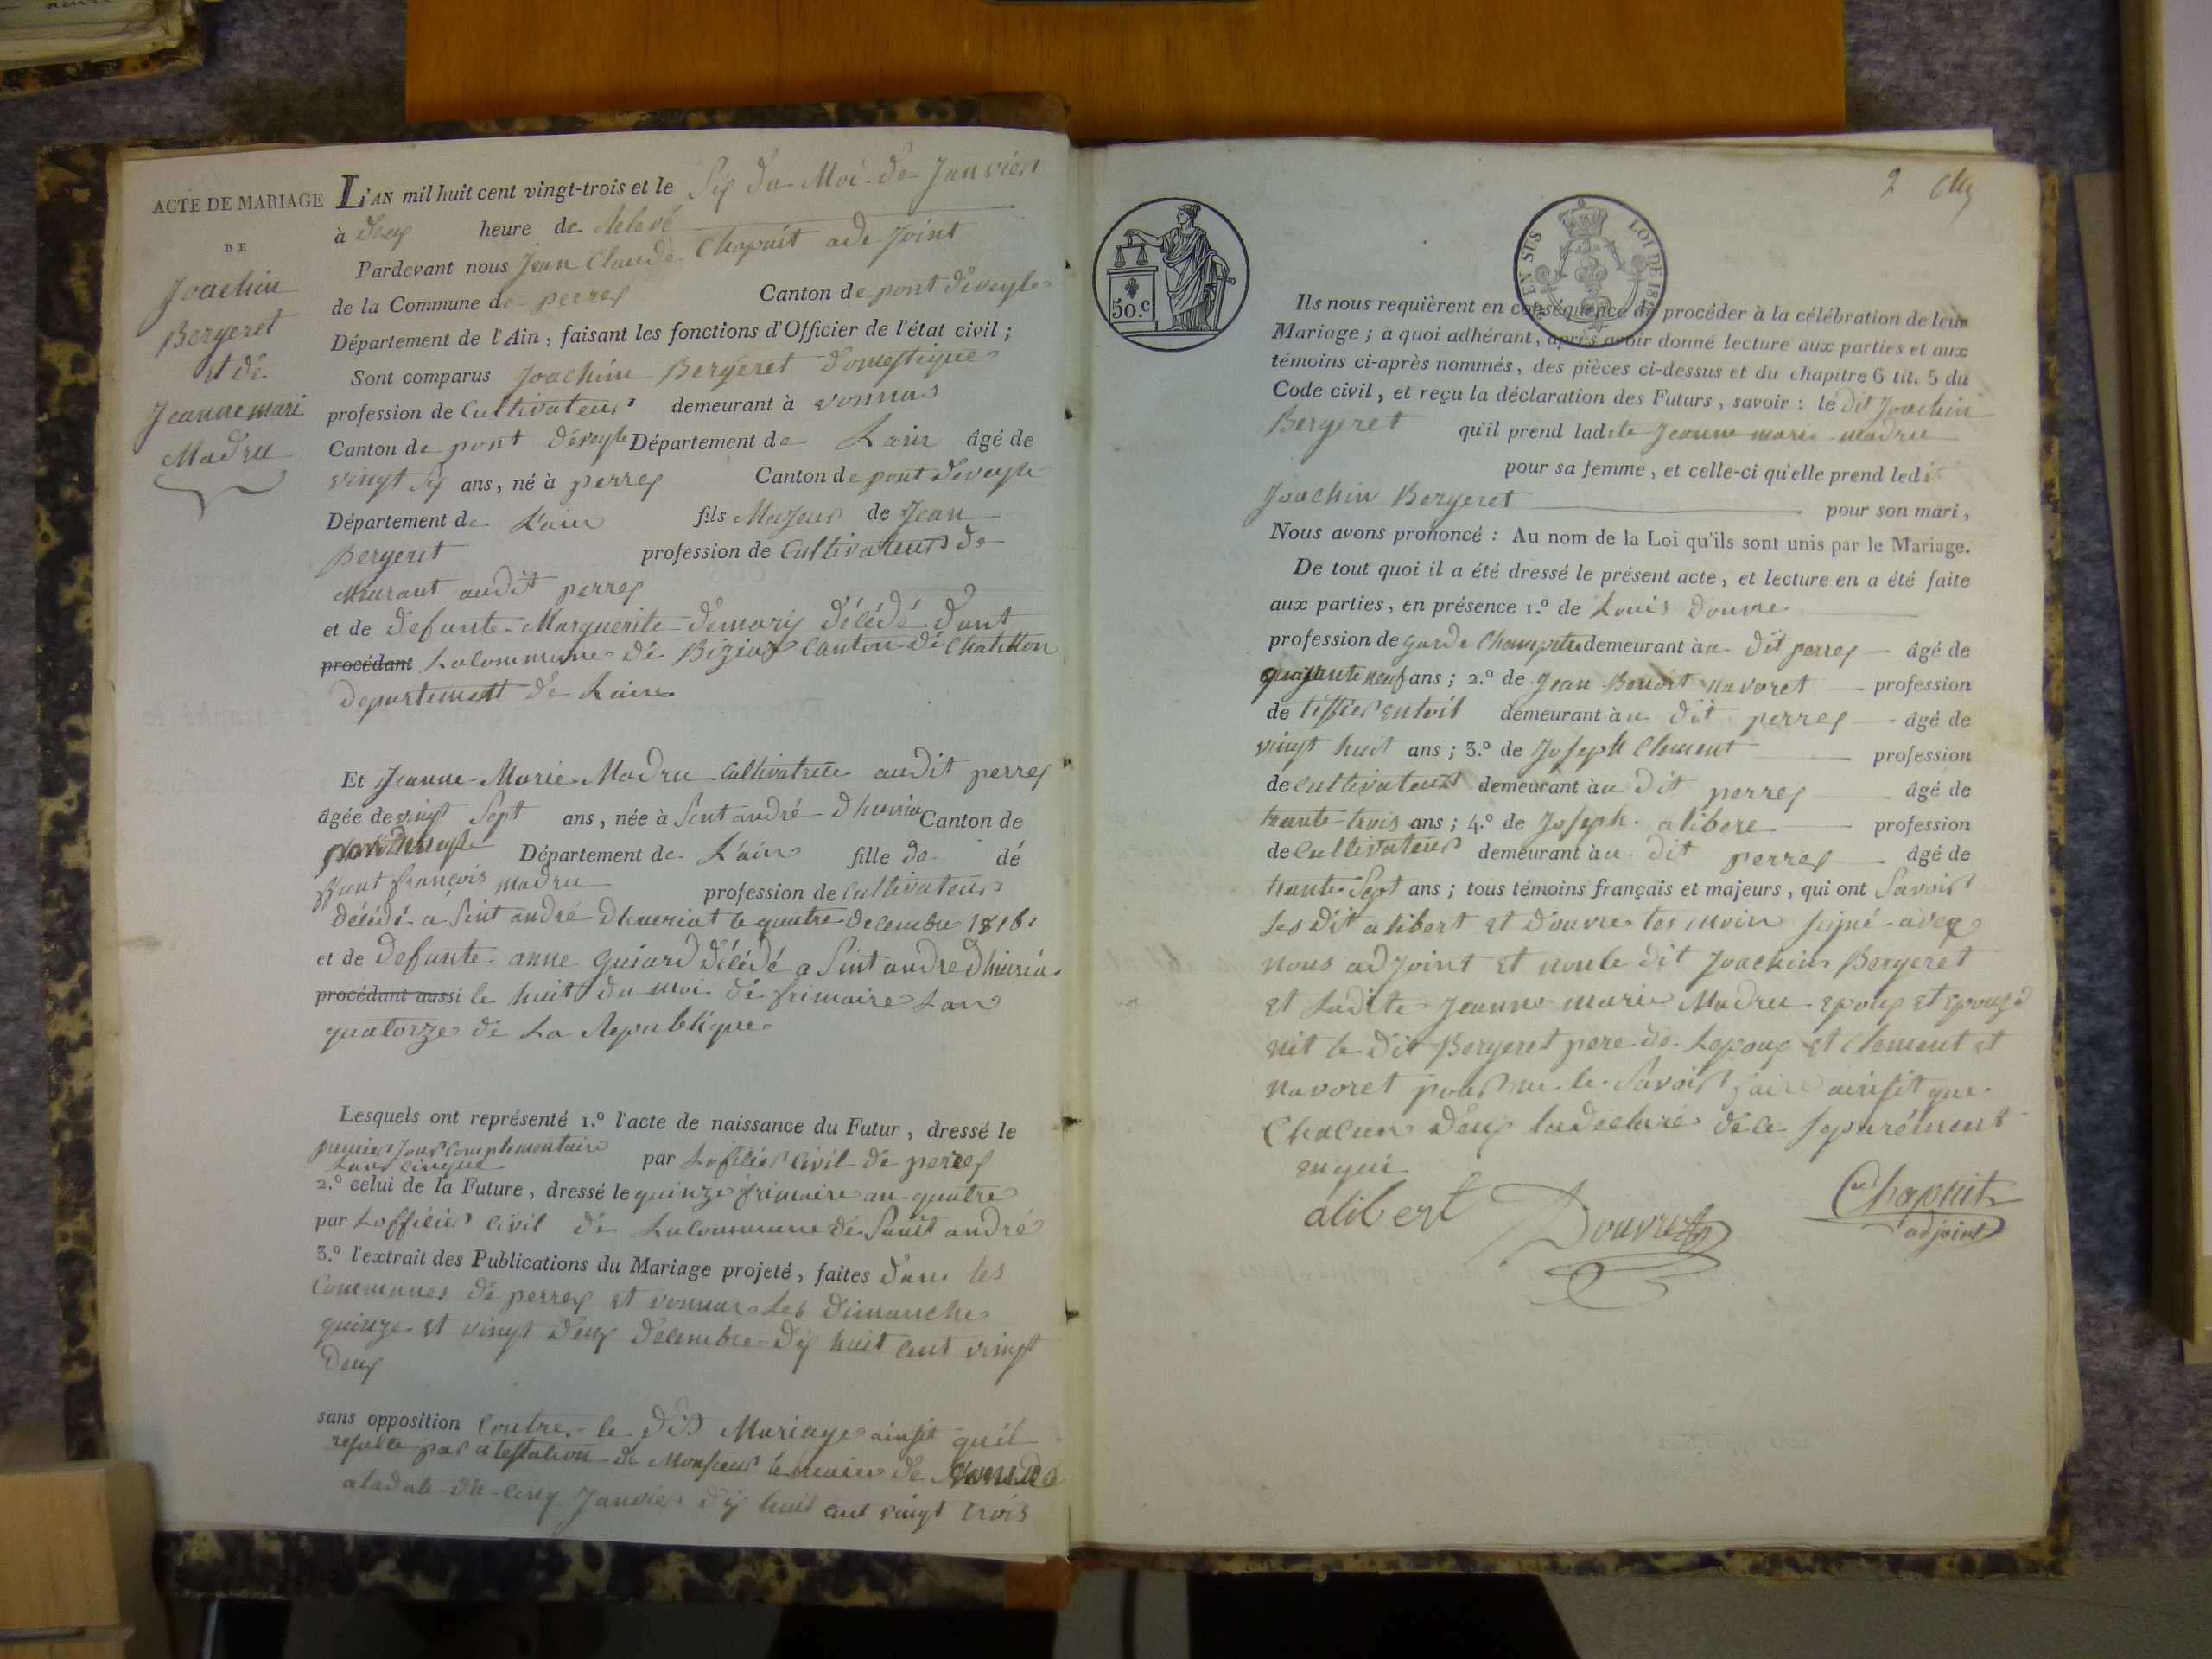 ACTE DE MARIAGE
DE
Joachin
Bergeret
et de
Jeanne mari
Madru
L'AN mil huit cent vingt-trois et le Six du Moi de Janvier
à deux heure de
Pardevant nous Jean Claude Chapuit ade Joint
de la Commune de perrex Canton de pont de veyle
Département de l'Ain, faisant les fonctions d'Officier de l'état civil;
Sont comparus Joachim Bergeret domestique
profession de Cultivateur demeurant à vonnas
Canton de pont deveyle Département de Lain âgé de
vingt six ans, né à perrex Canton de pont deveyle
Département de Lain fils Majeur de Jean
Bergeret profession de Cultivateur de
meurant audit perrex
et de defunte Marguerite demory délédé dant
procédant La commune de Biziaz Canton de Chatillon
departement de Lain
Et Jeanne Marie Madru Cultivatrice audit perrex
âgée de vingt Sept ans, née à Sint andré dhuria Canton de
pontdeveyle Département de Lain fille de dé
ffunt françois madru profession de Cultivateur
décédé a Sint andré Dhueriat le quatre decembre 1816
et de defunte anne guiard délédé a Sint andre dhuria
procédant aussi le huit du moi de frimaire Lan
quatorze de La Republique
Lesquels ont représenté 1.º l'acte de naissance du Futur, dressé le
premier Jour Complementaire
Lan cinque par Lofilier Civil de perrex
2.º celui de la Future, dressé le quinze frimaire an quatre
par Loffilier Civil de La Commune de Saint andré
3.º l'extrait des Publications du Mariage projeté, faites dans les
Communes de perrex et vonnas Les dimanche
quinze et vingt deux decembre dix huit cent vingt
deux
sans opposition Contre le dit Mariage ainsit quil
resulte par atestation de Monsieur le maire de
aladate du cinq Janvier dix huit cent vingt trois
2
50.c
EN SUS LOI DE
Ils nous requièrent en conséquence de procéder à la célébration de leur
Mariage; a quoi adhérant, après avoir donné lecture aux parties et aux
témoins ci-après nommés, des pièces ci-dessus et du chapitre 6 tit. 5 du
Code civil, et reçu la déclaration des Futurs, savoir: le dit Joachin
Bergeret qu'il prend ladite Jeanne marie madru
pour sa femme, et celle-ci qu'elle prend ledit
Joachin Bergeret pour son mari,
Nous avons prononcé: Au nom de la Loi qu'ils sont unis par le Mariage.
De tout quoi il a été dressé le présent acte, et lecture en a été faite
aux parties, en présence 1.º de Louis Douvre
profession de garde Champetre demeurant à au dit perrex âgé de
quarante neuf ans; 2.º de Jean Benoit navoret profession
de tissier entoil demeurant à au dit perrex âgé de
vingt huit ans; 3.º de Joseph Clement profession
de Cultivateur demeurant à au dit perrex âgé de
trante trois ans; 4.º de Joseph alibere profession
de Cultivateur demeurant à au dit perrex âgé de
trante Sept ans; tous témoins français et majeurs, qui ont Savoir
Les dit alibert et Douvre tesmoin signé avec
nous adjoint et non le dit Joachin Bergeret
et Ladite Jeanne marie Madru epoux et epouze
nit le dit Bergeret pere de Lepoux et Clement et
navoret pour ne le Savoir faire ainsit que
Chacun deux la declaré de ce separément
enqui
alibert Douvre Chapuit
adjoint